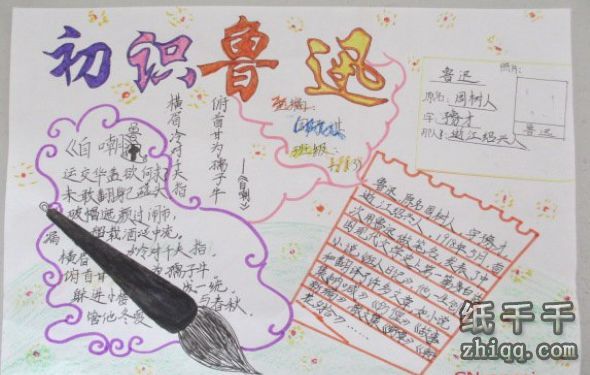 初识鲁迅
俯首甘为孺子牛
横眉冷对千夫指
——《自嘲》
班级:
照片:
鲁迅
原名:周树人
字:豫才
浙江绍兴人
鲁迅
《自嘲》
运交华盖欲何求
未敢翻身已碰头
破帽遮颜过闹市,
漏 载酒泛中流
横眉冷对千夫指,
俯首甘为孺子牛
躲进小楼成一统,
管他冬夏与春秋
鲁迅,原名周树人,字豫才,
浙江绍兴人,1918年5月首
次用鲁迅做笔名,发表了中
国现代文学史上第一篇白话
小说 人日记》他一生创作
和翻译了许多文章,如小说
集《呐喊》《彷徨》《故事
新编》散文集
纸千千
zhiqq.com